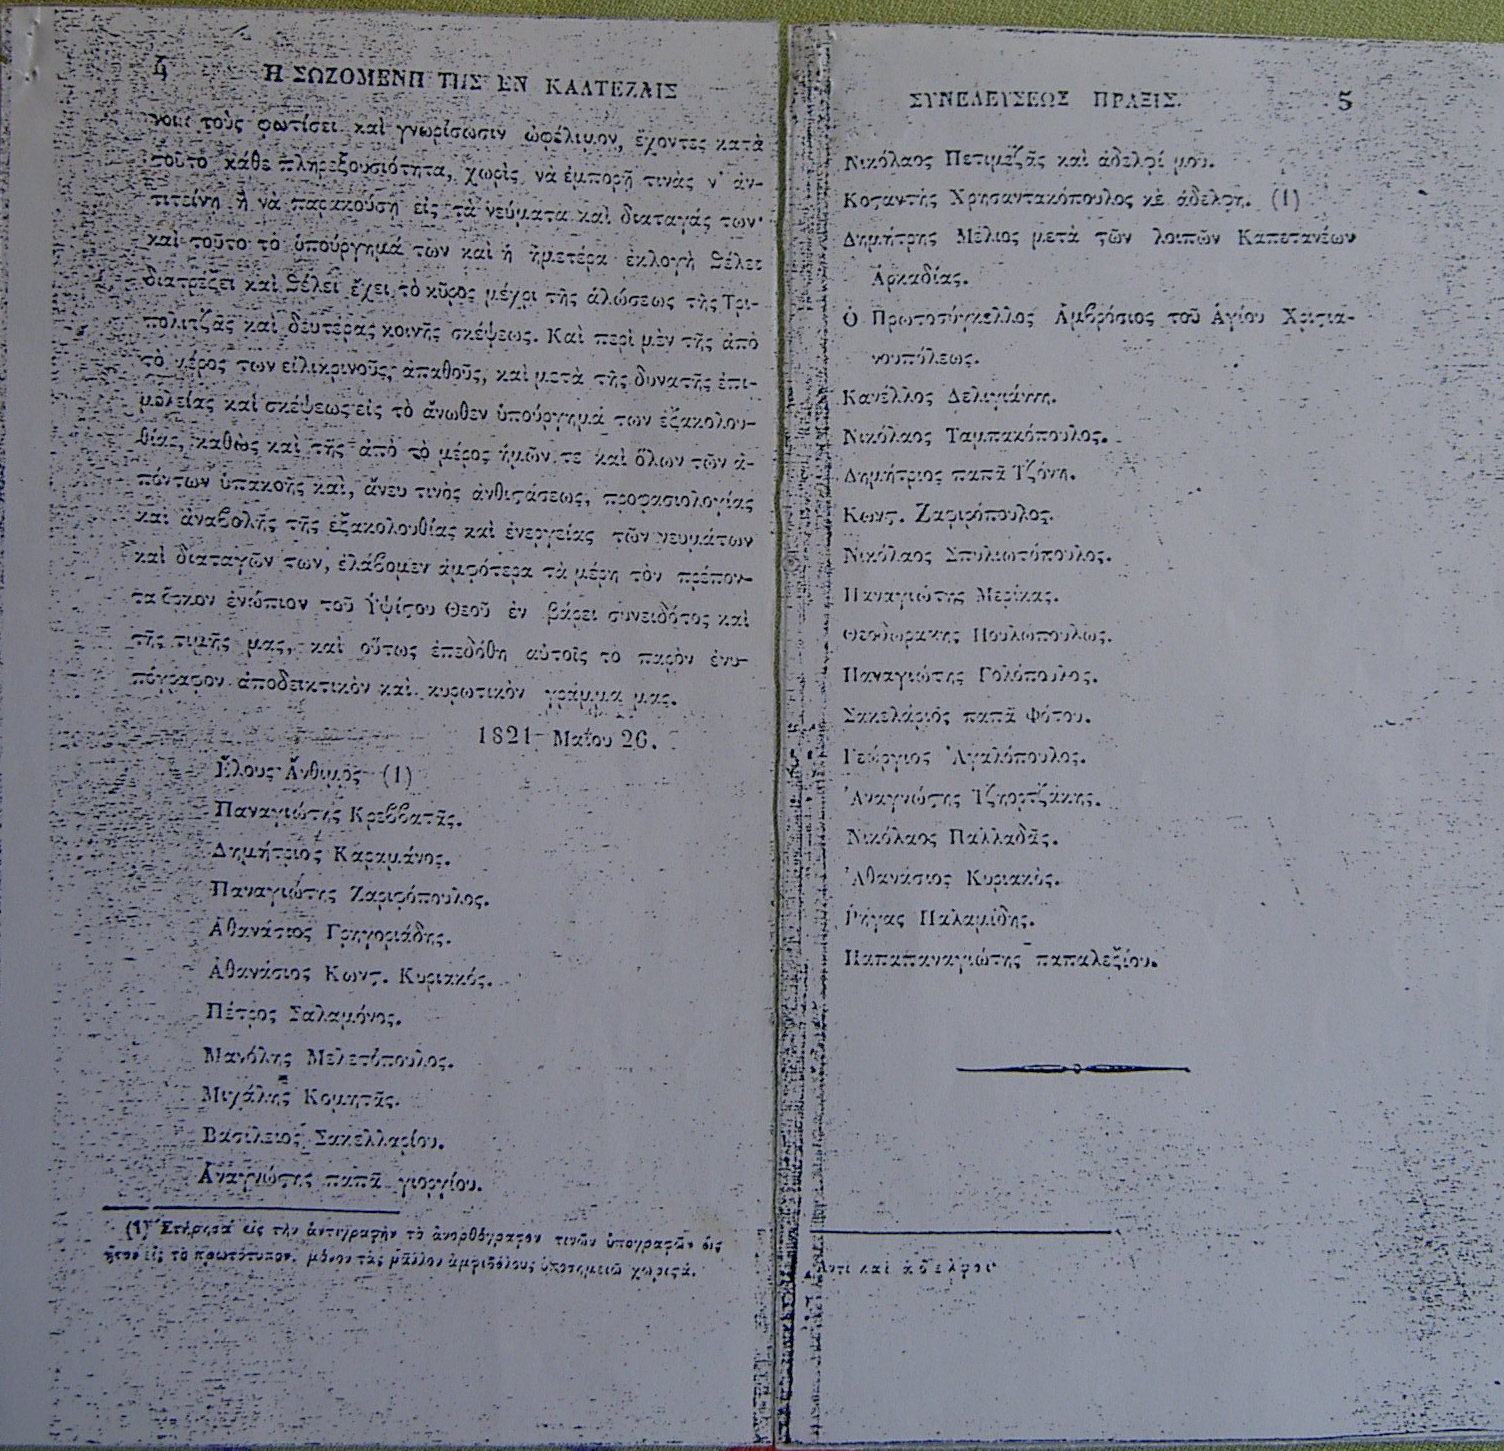 4 Η ΣΩΖΟΜΕΝΗ ΤΗΣ ΕΝ ΚΑΛΤΕΖΑΙΣ
τοὺς φωτίσει καὶ γνωρίσωσιν ὠφέλιμον, ἔχοντες κατὰ
τοῦτο κάθε πληρεξουσιότητα, χωρὶς νὰ ἐμπορῇ τινὰς ν' ἀν-
τιτείνῃ ἢ νὰ παρακούσῃ εἰς τὰ νεύματα καὶ διαταγάς των·
καὶ τοῦτο τὸ ὑπούργημά των καὶ ἡ ἡμετέρα ἐκλογὴ θέλει
διατρέξει καὶ θέλει ἔχει τὸ κῦρος μέχρι τῆς ἁλώσεως τῆς Τρι-
πολιτζᾶς καὶ δευτέρας κοινῆς σκέψεως. Καὶ περὶ μὲν τῆς ἀπὸ
τὸ μέρος των εἰλικρινοῦς, ἀπαθοῦς, καὶ μετὰ τῆς δυνατῆς ἐπι-
μελείας καὶ σκέψεως εἰς τὸ ἄνωθεν ὑπούργημά των ἐξακολου-
θίας, καθὼς καὶ τῆς ἀπὸ τὸ μέρος ἡμῶν τε καὶ ὅλων τῶν ἀ-
πόντων ὑπακοῆς καὶ, ἄνευ τινὸς ἀνθιστάσεως, προφασιολογίας
καὶ ἀναβολῆς τῆς ἐξακολουθίας καὶ ἐνεργείας τῶν νευμάτων
καὶ διαταγῶν των, ἐλάβομεν ἀμφότερα τὰ μέρη τὸν πρέπον-
τα ὅρκον ἐνώπιον τοῦ Ὑψίστου Θεοῦ ἐν βάρει συνειδότος καὶ
τῆς τιμῆς μας, καὶ οὕτως ἐπεδόθη αὐτοῖς τὸ παρὸν ἐνυ-
πόγραφον ἀποδεικτικὸν καὶ κυρωτικὸν γράμμα μας.
1821 Μαΐου 26.
Ἕλους Ἄνθιμος (1)
Παναγιώτης Κρεββατᾶς.
Δημήτριος Καραμάνος.
Παναγιώτης Ζαριφόπουλος.
Ἀθανάσιος Γρηγοριάδης.
Ἀθανάσιος Κωνστ. Κυριακός.
Πέτρος Σαλαμόνος.
Μανόλης Μελετόπουλος.
Μιχάλης Κομητᾶς.
Βασίλειος Σακελλαρίου.
Ἀναγνώστης παπᾶ γιοργίου.
(1) Ἐτήρησα εἰς τὴν ἀντιγραφὴν τὸ ἀνορθόγραφον τινῶν ὑπογραφῶν ὡς
ἦτον εἰς τὸ πρωτότυπον. μόνον τὰς μᾶλλον ἀμφιβόλους ὑποσημειῶ χωριστά.
ΣΥΝΕΛΕΥΣΕΩΣ ΠΡΑΞΙΣ. 5
Νικόλαος Πετιμεζᾶς καὶ ἀδελφοί μου.
Κοσταντὴς Χρησαντακόπουλος κὲ ἀδελφη. (1)
Δημήτρης Μέλιος μετὰ τῶν λοιπῶν Καπετανέων
Ἀρκαδίας.
Ὁ Πρωτοσύγκελλος Ἀμβρόσιος τοῦ Ἁγίου Χριστια-
νουπόλεως.
Κανέλλος Δελιγιάννη.
Νικόλαος Ταμπακόπουλος.
Δημήτριος παπᾶ Τζόνη.
Κωνστ. Ζαφιρόπουλος.
Νικόλαος Σπυλιωτόπουλος.
Παναγιώτης Μερίκας.
Θεοδωρακης Πουλωπουλως.
Παναγιώτης Γολόπουλος.
Σακελάριός παπᾶ Φότου.
Γεώργιος Ἀγαλόπουλος.
Ἀναγνώστης Τζηορτζάκης.
Νικόλαος Παλλαδᾶς.
Ἀθανάσιος Κυριακὸς.
Ῥήγας Παλαμίδης.
Παπαπαναγιώτης παπαλεξίου.
ἀντὶ καὶ ἀδελφοι